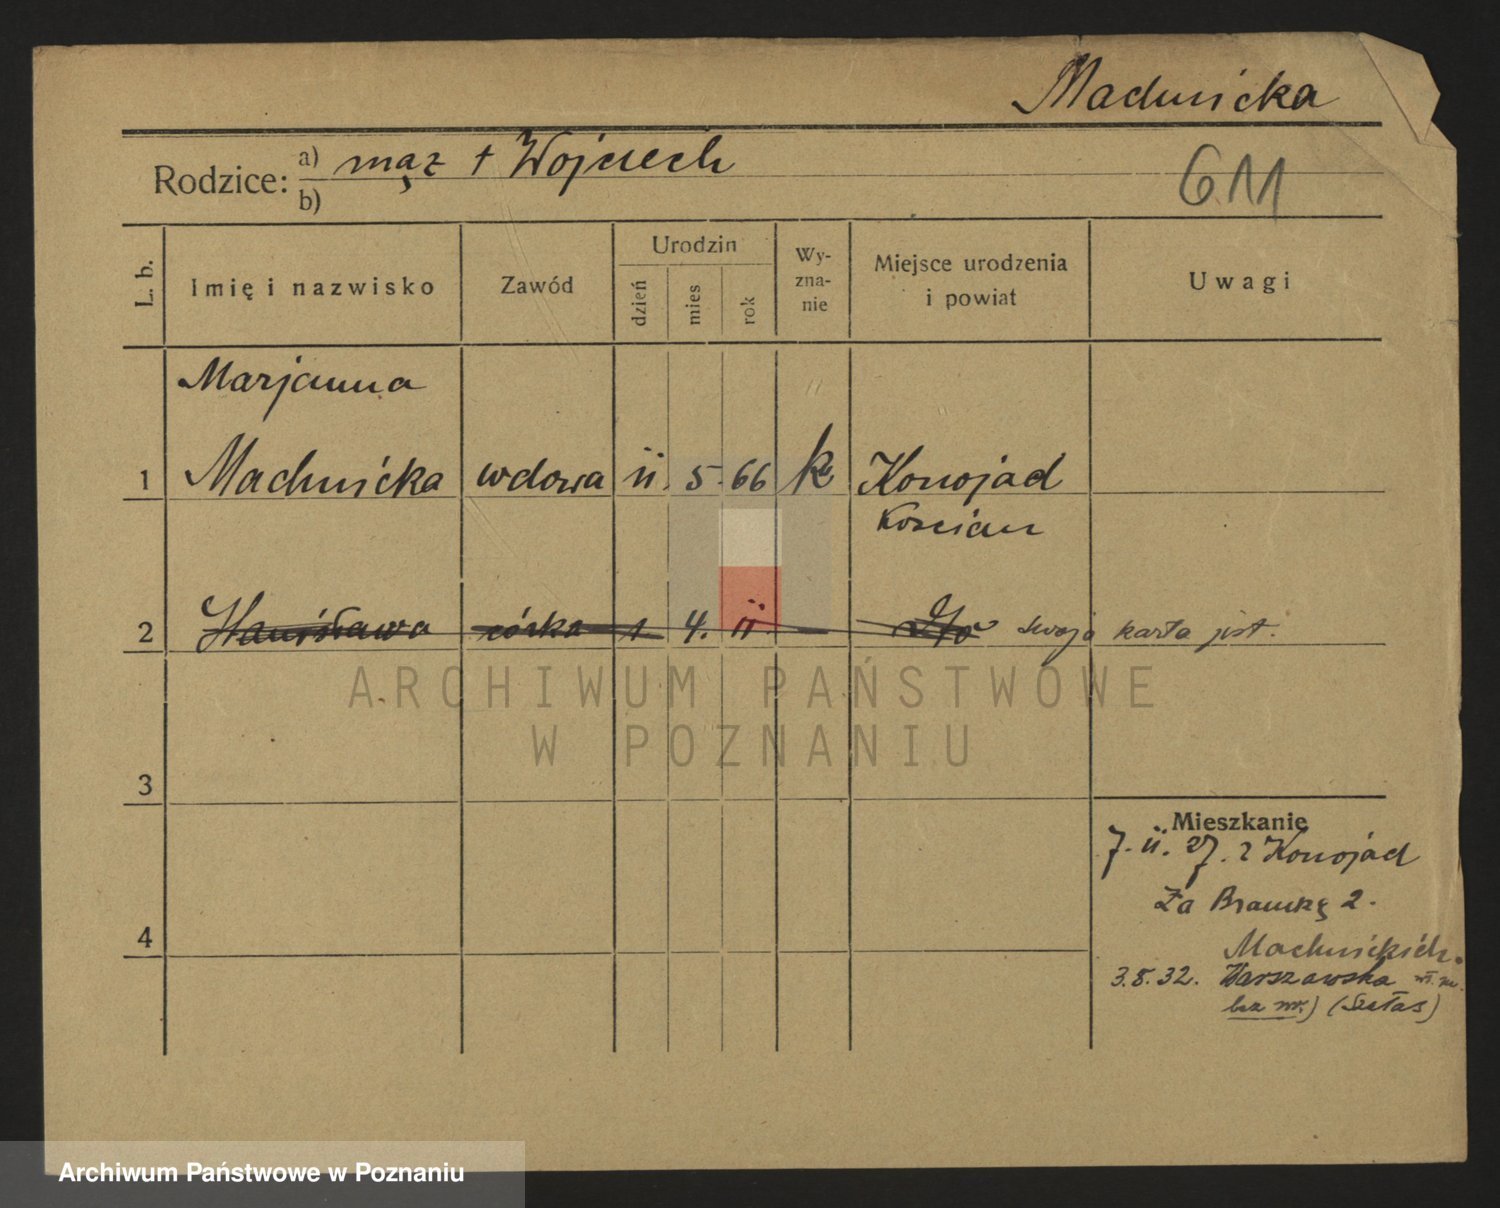 Machnicka
Rodzice: a) mąż + Wojciech
b)
611
L. b.
Imię i nazwisko
Zawód
Urodzin
dzień
mies
rok
Wy-
zna-
nie
Miejsce urodzenia
i powiat
Uwagi
Marjanna
1 Machnicka wdowa 11. 5. 66 k Konojad
Koscian
2 Stanisława córka 1 4. 11 swoja karta jest.
ARCHIWUM PAŃSTWOWE
W POZNANIU
3
Mieszkanie
7. 11. 27. z Konojad
Za Bramką 2.
4
Machnickich.
3.8.32. Warszawska
bez nr.) (Szełas)
Archiwum Państwowe w Poznaniu